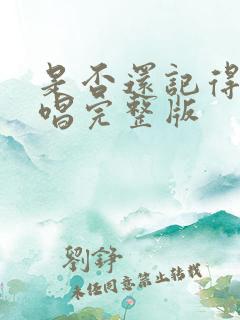 是否還記得
唱完整版
劉錚
未经同意禁止转载